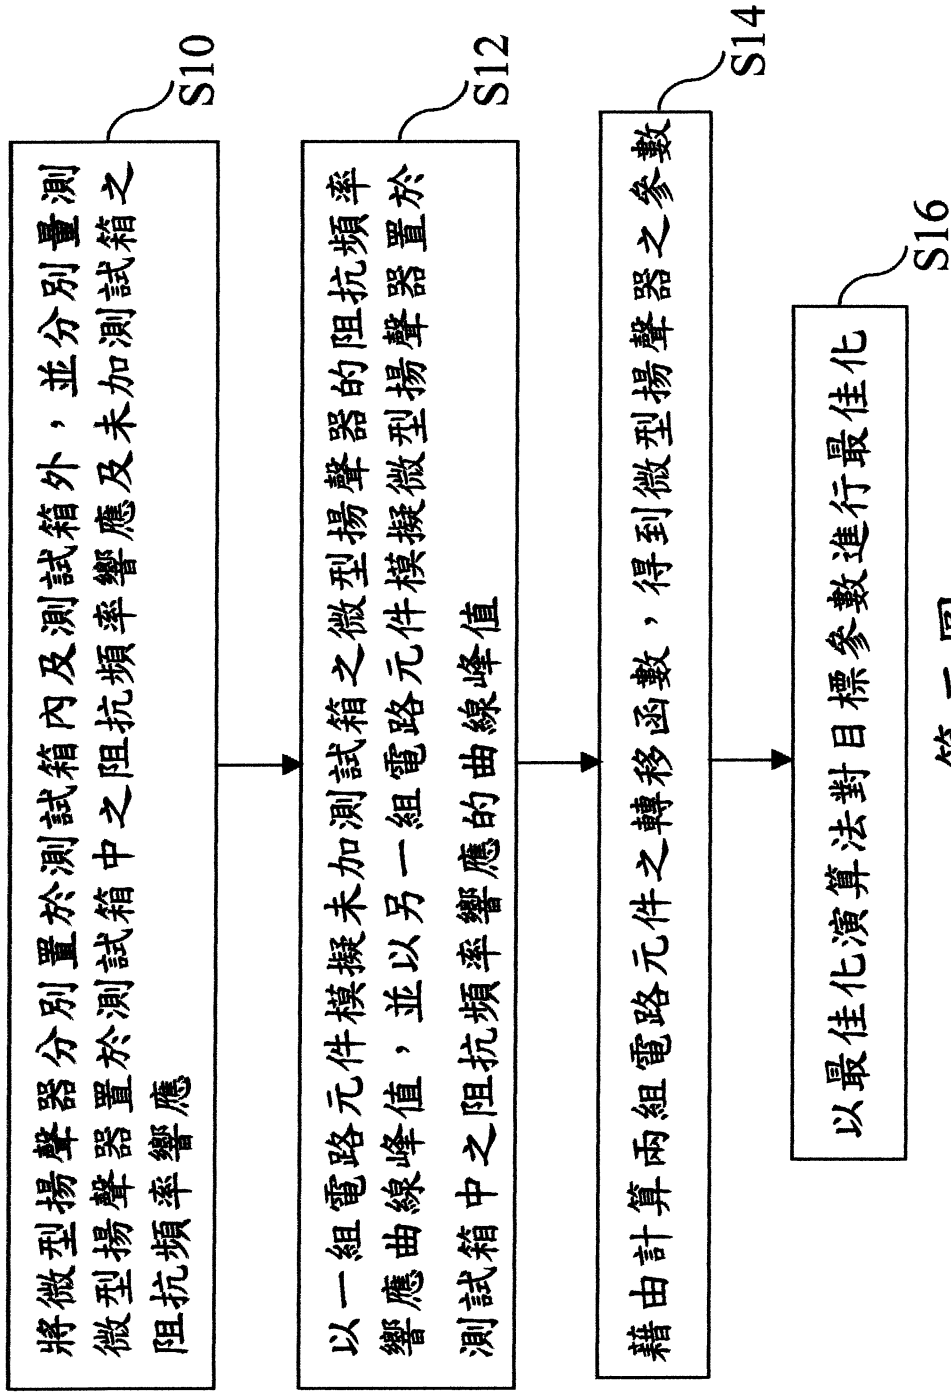 將微型揚聲器分別置於測試箱內及測試箱外，並分別量測
微型揚聲器置於測試箱中之阻抗頻率響應及未加測試箱之
阻抗頻率響應
S10
以一組電路元件模擬未加測試箱之微型揚聲器的阻抗頻率
響應曲線峰值，並以另一組電路元件模擬微型揚聲器置於
測試箱中之阻抗頻率響應的曲線峰值
S12
藉由計算兩組電路元件之轉移函數，得到微型揚聲器之參數
S14
以最佳化演算法對目標參數進行最佳化
S16